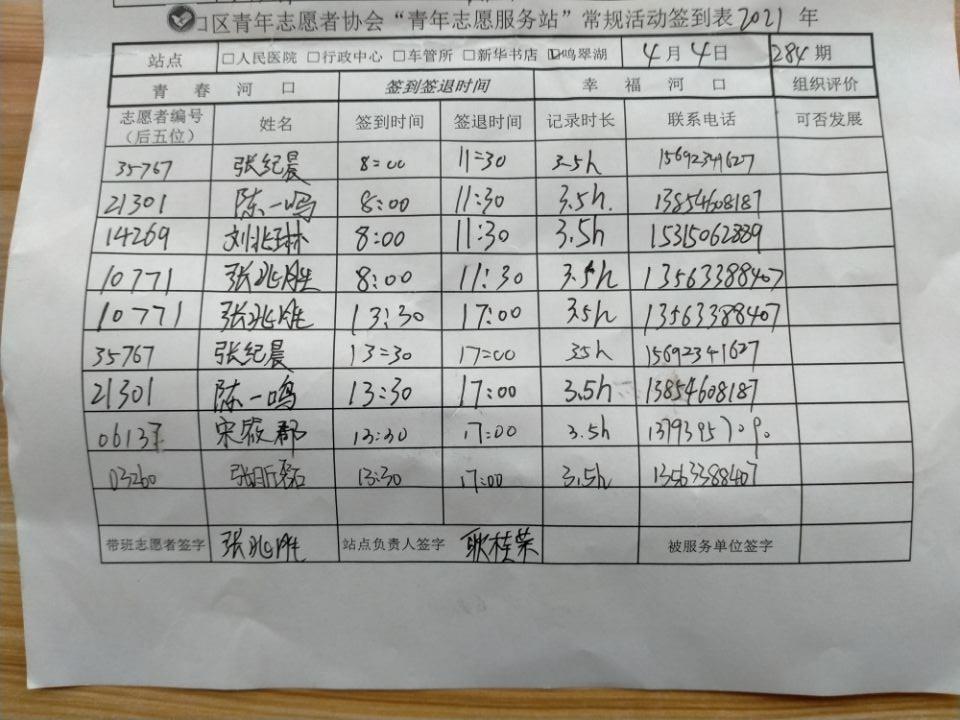 口区青年志愿者协会“青年志愿服务站”常规活动签到表2021 年
站点 □人民医院 □行政中心 □车管所 □新华书店 ☑鸣翠湖 4月4日 284期
青春河口 签到签退时间 幸福河口 组织评价
志愿者编号（后五位） 姓名 签到时间 签退时间 记录时长 联系电话 可否发展
35767 张纪晨 8:00 11:30 3.5h 15692341627
21301 陈一鸣 8:00 11:30 3.5h. 13854608187
14269 刘兆琳 8:00 11:30 3.5h 15315062889
10771 张兆胜 8:00 11:30 3.5h 13563388407
10771 张兆胜 13:30 17:00 3.5h 13563388407
35767 张纪晨 13:30 17:00 3.5h 15692341627
21301 陈一鸣 13:30 17:00 3.5h 13854608187
0613 宋筱郡 13:30 17:00 3.5h
03260 13:30 17:00 3.5h 13563388407
带班志愿者签字 张兆胜 站点负责人签字 耿桂荣 被服务单位签字